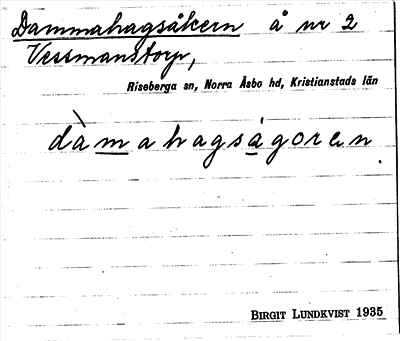 Dammahagsåkern å nr 2
Vessmanstorp,
Riseberga sn, Norra Åsbo hd, Kristianstads län
dàmahagsågoren
BIRGIT LUNDKVIST 1935